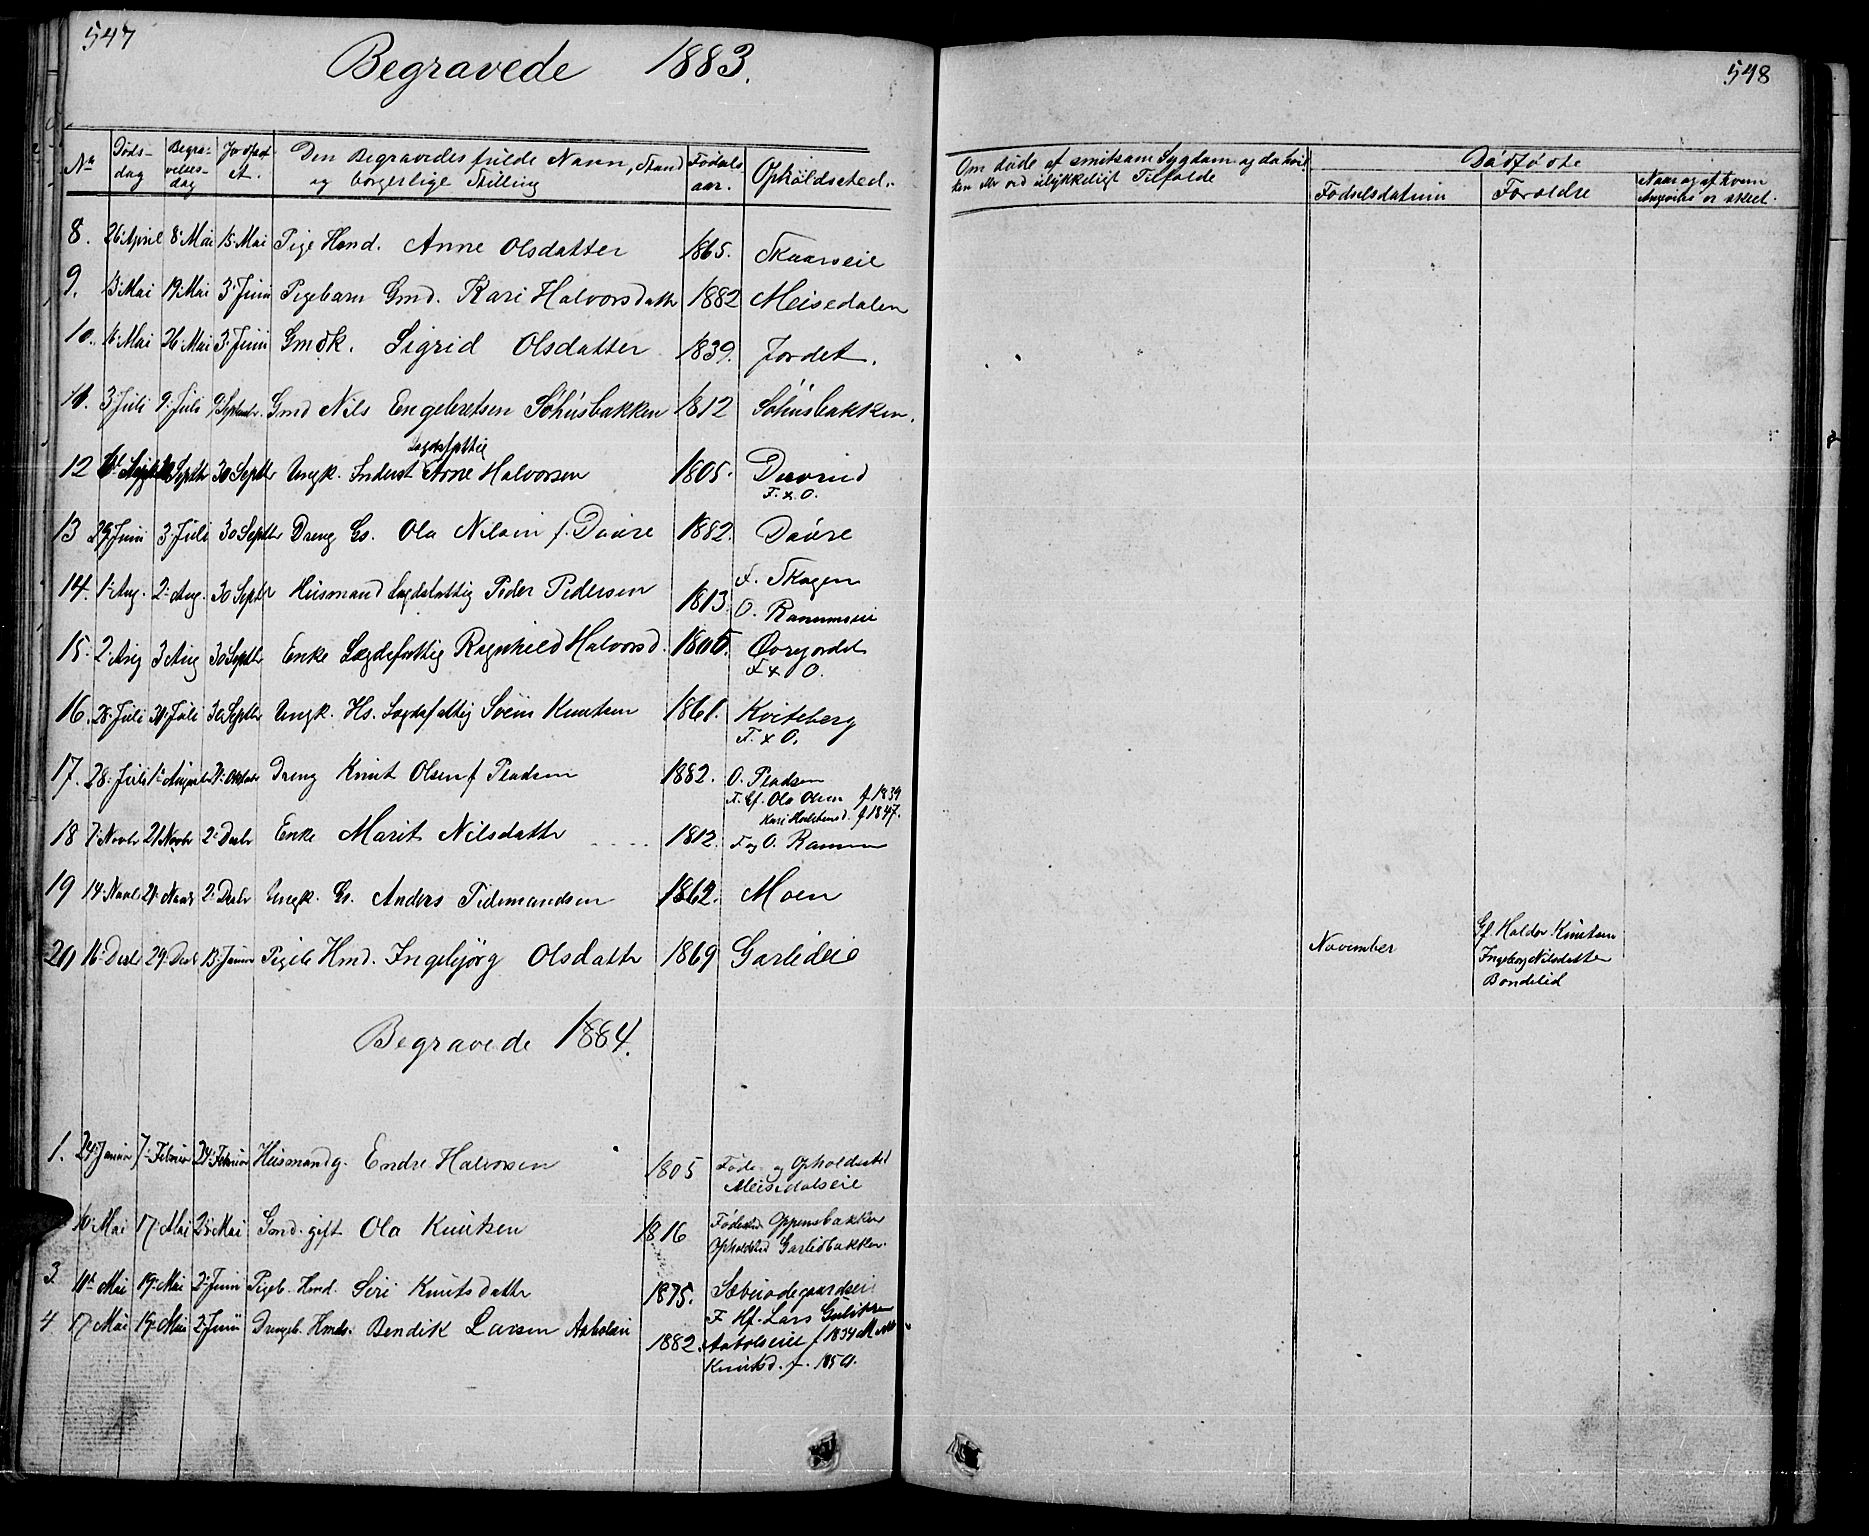 547
Begravede 1883.
No Døds-dag Begra-velses-dag Jordfæst-et. Den Begravedes fulde Navn, Stand og borgerlige Stilling Fødsels aar. Opholdssted.
8. 26 April 8 Mai 15 Mai Pige Hmd. Anne Olsdatter 1865. Skaarseie
9. 13 Mai 19 Mai 3 Juni Pigebarn Gmd. Kari Halvorsdattr 1882 Meisedalen
10. 16 Mai 26 Mai 3 Juni Gmdk. Sigrid Olsdatter 1839. Jordet.
11. 3 Juli 9 Juli 9 Septembr. Gmd Nils Engebretsen Søhusbakken 1812 Søhusbakken.
Lægdsfattig
12 Septbr 30 Septbr Ungk. Inderst Arne Halvorsen 1805.
F. & O.
13 29 Juni 3 Juli 30 Septbr Dreng Gs. Ola Nilsen f. Døvre 1882. Døvre
14. 1 Aug. 2 Aug. 30 Septbr Husmand Lægdsfattig Peder Pedersen 1813 F. Skogen
O. Ranumseie
15. 2 Aug 3 Aug 30 Septbr Enke Lægdsfattig Ragnhild Halvorsd. 1805. Øvrejordet
F & O.
16. 28 Juli 30 Septbr Ungk. Hs. Lægdsfattig Svein Knutsen 1861. Kviteberg
F. & O.
17. 28 Juli 1 August 21 Oktobr Dreng Knut Olsen f Pladsen 1882. O. Pladsen
F. Gf. Ola Olsen f 1839
Kari f 1847.
18 7 Novbr 21 Novbr 2 Decbr Enke Marit Nilsdattr 1812. F og O. Ranum
19 14 Novbr 21 Novbr 2 Decbr Ungk. Gs. Anders Tidemandsen 1862. Moen
20 16 Decbr 29 Decbr 13 Januar Pigeb Hmd. Ingebjørg Olsdattr 1869 Garlideie
Begravede 1884.
1. 24 Januar 7 Februar 24 Februar Husmand g. Endre Halvorsen 1805 Føde- og Opholdssted
Meisedalseie
10 Mai 17 Mai 25 Mai Gmd. gift Ola Knutsen 1816 Fødested Oppensbakken
Opholdsted Garlidbakken
3 11 Mai 19 Mai 2 Juni Pigeb. Hmd. Siri Knutsdattr 1875. Sæbuødegaardseie
4 17 Mai 19 Mai 2 Juni Drengb. Hmds. Bendik Larsen Aabolseie 1882. F Hf. Lars Gulikse
Aabolseiet f 1834 M
Knutsd. f. 1850.
548
Om døde af smitsom Sygdom og da hvil-ken eller ved ulykkeligt Tilfælde
Dødfødte
Fødselsdatum Forældre Naar og af hvem Angivelse er skeet.
November Gf. Haldor Knutsen
Ingeborg Nilsdatter
Bondelid